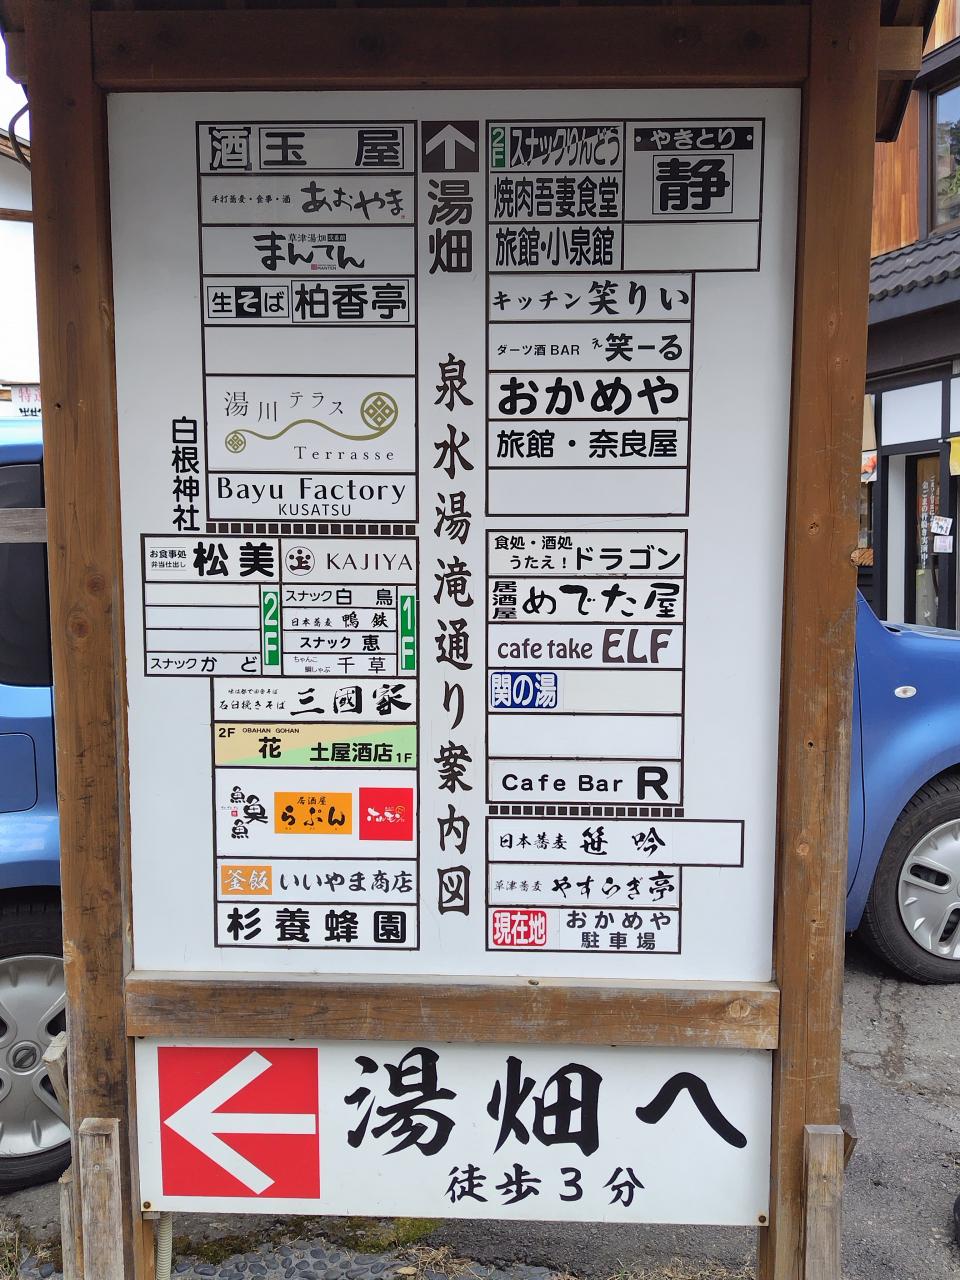 酒 玉屋
手打蕎麦・食事・酒 あおやま
草津湯畑
まんてん
MANTEN
生そば 柏香亭
湯川テラス
Terrasse
Bayu Factory
KUSATSU
白根神社
お食事処
弁当仕出し
松美
KAJIYA
2F
スナックかど
1F
スナック白鳥
日本蕎麦 鴨鉄
スナック恵
ちゃんこ
鍋しゃぶ
千草
石臼挽きそば 三國家
2F OBAHAN GOHAN
花 土屋酒店 1F
魚魚魚
居酒屋
らぶん
釜飯 いいやま商店
杉養蜂園
湯畑
泉水湯滝通り案内図
2F スナックりんどう
やきとり
静
焼肉吾妻食堂
旅館・小泉館
キッチン 笑りい
ダーツ酒BAR え笑ーる
おかめや
旅館・奈良屋
食処・酒処
うたえ!ドラゴン
居酒屋 めでた屋
cafe take ELF
関の湯
Cafe Bar R
日本蕎麦 笹吟
草津蕎麦 やすらぎ亭
現在地 おかめや
駐車場
湯畑へ
徒歩3分